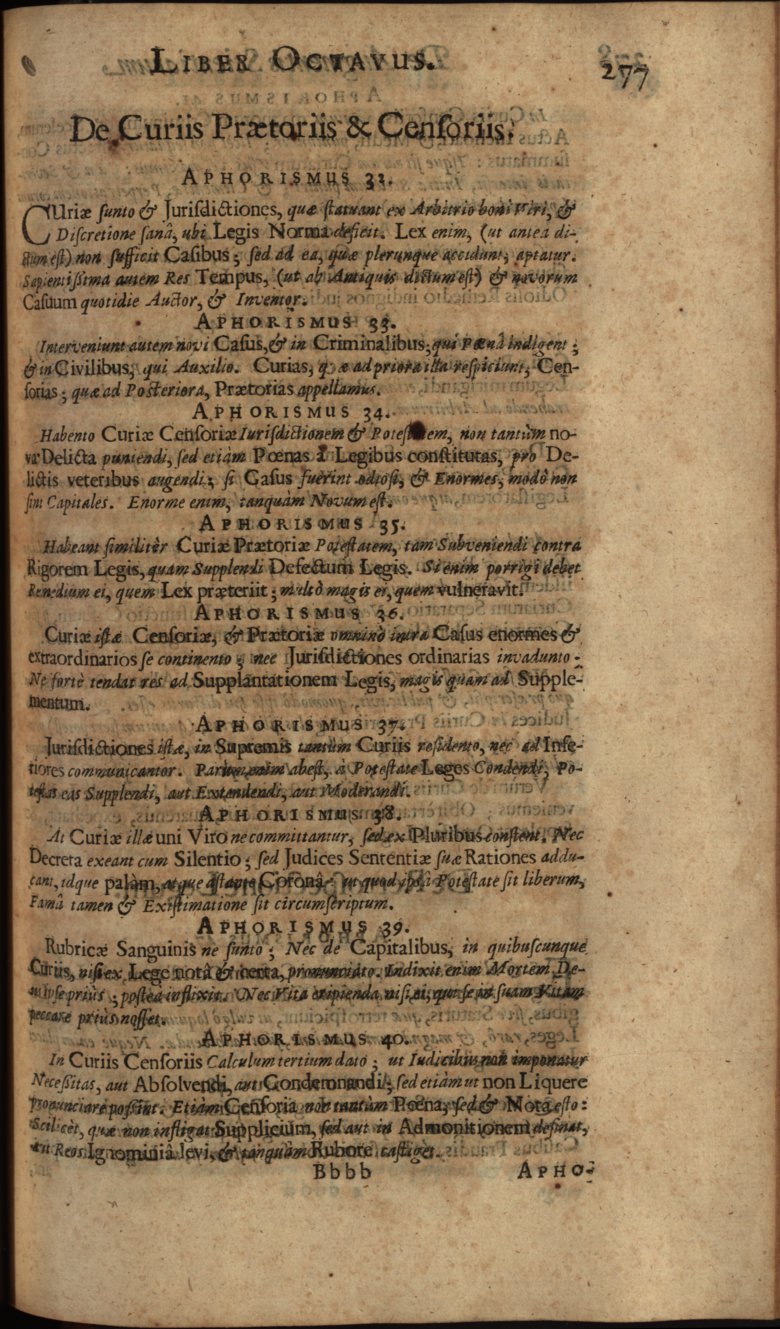 LIBER OCTAVUS.
277
De Curiis Prætoriis & Censoriis.
APHORISMUS 32.
CUriæ sunto & Jurisdictiones, quæ statuant ex Arbitrio boni Viri, &
Discretione sanâ, ubi Legis Norma deficit. Lex enim, (ut anteà di-
ctum est) non sufficit Casibus; sed ad ea, quæ plerunque accidunt, aptatur.
Sapientissima autem Res Tempus, (ut ab Antiquis dictum est) & novorum
Casuum quotidie Auctor, & Inventor.
APHORISMUS 33.
Interveniunt autem novi Casus, & in Criminalibus, qui Pœnâ indigent;
& in Civilibus, qui Auxilio. Curias, quæ ad priora illa respiciunt, Cen-
sorias; quæ ad Posteriora, Prætorias appellamus.
APHORISMUS 34.
Habento Curiæ Censoriæ Iurisdictionem & Potestatem, non tantùm no-
va Delicta puniendi, sed etiàm Pœnas à Legibus constitutas, pro De-
lictis veteribus augendi; si Casus fuerint odiosi, & Enormes, modò non
sint Capitales. Enorme enim, tanquàm Novum est.
APHORISMUS 35.
Habeant similitèr Curiæ Prætoriæ Potestatem, tam Subveniendi contra
Rigorem Legis, quam Supplendi Defectum Legis. Si enim porrigi debet
Remedium ei, quem Lex præteriit; multò magis ei, quem vulneravit.
APHORISMUS 36.
Curiæ istæ Censoriæ, & Prætoriæ omninò intrà Casus enormes &
extraordinarios se continento; nec Jurisdictiones ordinarias invadunto.
Ne fortè tendat res ad Supplantationem Legis, magis quàm ad Supple-
mentum.
APHORISMUS 37.
Jurisdictiones istæ, in Supremis tantùm Curiis residento, nec ad Infe-
riores communicantor. Parùm enim abest, à Potestate Leges Condendi, Po-
testas eas Supplendi, aut Extendendi, aut Moderandi.
APHORISMUS 38.
At Curiæ illæ uni Viro ne committantur, sed ex Pluribus constent. Nec
Decreta exeant cum Silentio; sed Judices Sententiæ suæ Rationes addu-
cant, idque palàm, atque astante Coronâ; ut quod ipsâ Potestate sit liberum,
Famâ tamen & Existimatione sit circumscriptum.
APHORISMUS 39.
Rubricæ Sanguinis ne sunto; Nec de Capitalibus, in quibuscunque
Curiis, nisi ex Lege notâ & certa, pronunciato. Indixit enim Mortem De-
us ipse priùs; posteà inflixit. Nec Vita eripienda nisi ei, qui se in suam Vitam
peccare priùs nosset.
APHORISMUS 40.
In Curiis Censoriis Calculum tertium dato; ut Iudicibus non imponatur
Necessitas, aut Absolvendi, aut Condemnandi; sed etiàm ut non Liquere
pronunciare possint. Etiàm Censoria non tantùm Pœna, sed & Nota esto:
Scilicèt, quæ non infligat Supplicium, sed aut in Admonitionem desinat,
aut Reos Ignominiâ levi, & tanquàm Rubore castiget.
Bbbb
APHO-